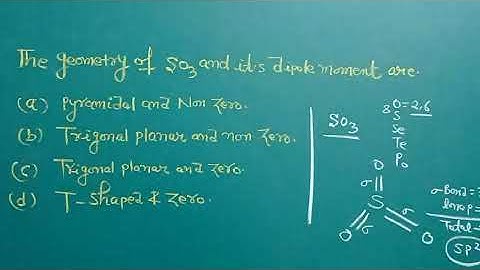 The geometry of SO3 and it's dipole moment are.
(a) Pyramidal and Non Zero.
(b) Trigonal planar and non Zero.
(c) Trigonal planar and zero.
(d) T-Shaped & Zero.
SO3
8 O = 2,6
S
Se
Te
Po
O
σ
S
σ
O σ O
σ Bond =
Total
SP2